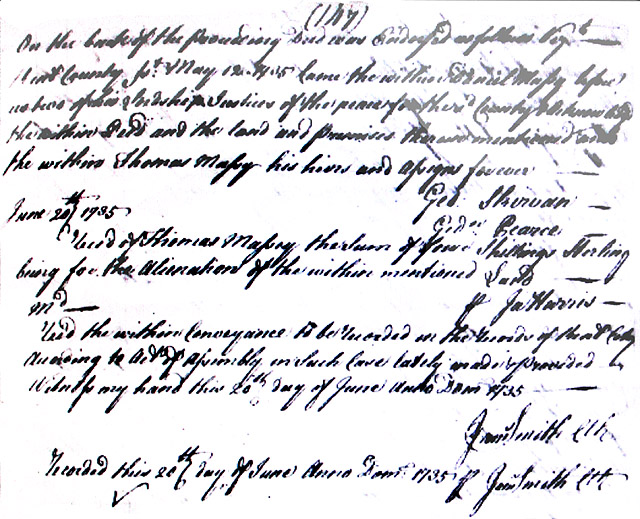 (147)
On the back of the preceeding Deed was Endorsed as follows Viz.t
Kent County Sst May 12 1735 Came the within Daniel Massy before
us two of his Lordships Justices of the peace for the sd County & Acknowledged
the within Deed and the land and premises therein mentioned
the within Thomas Massy his heirs and Assigns forever
Geo. Skirvan
June 20th 1735
Gideon Pearce
Recd of Thomas Massy the Sum of Four Shillings Sterling
being for the Alienation of the within mentioned Land
Md
p Ja Harris
Recd the within Conveyance to be Recorded in the Records of Kent County
According to Act of Assembly in Such Case lately made & provided
Witness my hand this 20th day of June Anno Dom 1735
Jams Smith Clk
Recorded this 20th day of June Anno Dom. 1735 p Jams Smith Clk